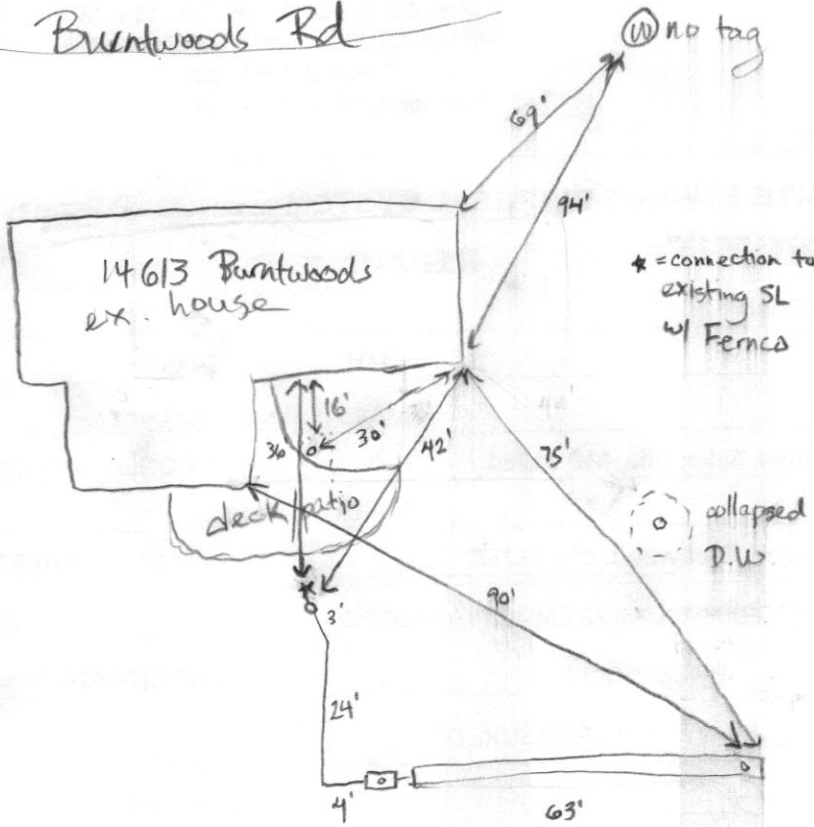 Burntwoods Rd
W no tag
69'
94'
14613 Burntwoods
ex. house
* = connection to
existing SL
w/ Fernco
16'
30'
36
42'
75'
deck patio
collapsed
D.W
90'
3'
24'
4'
63'